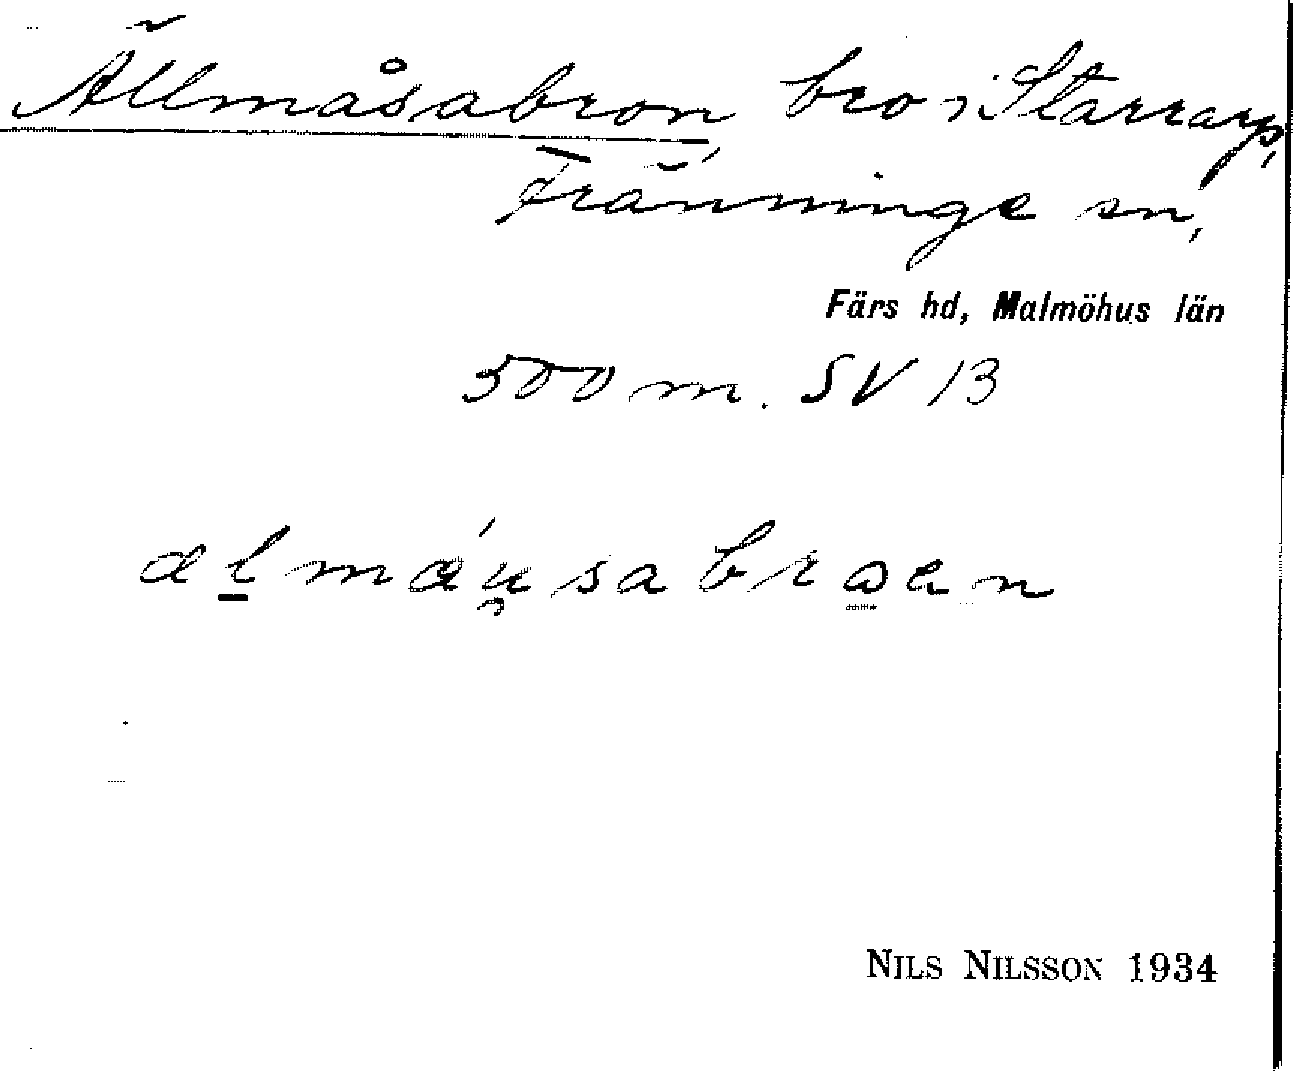 Ällmåsabron, bro i Starrarp,
Fränninge sn,
Färs hd, Malmöhus län
500 m. SV 13
NILS NILSSON 1934